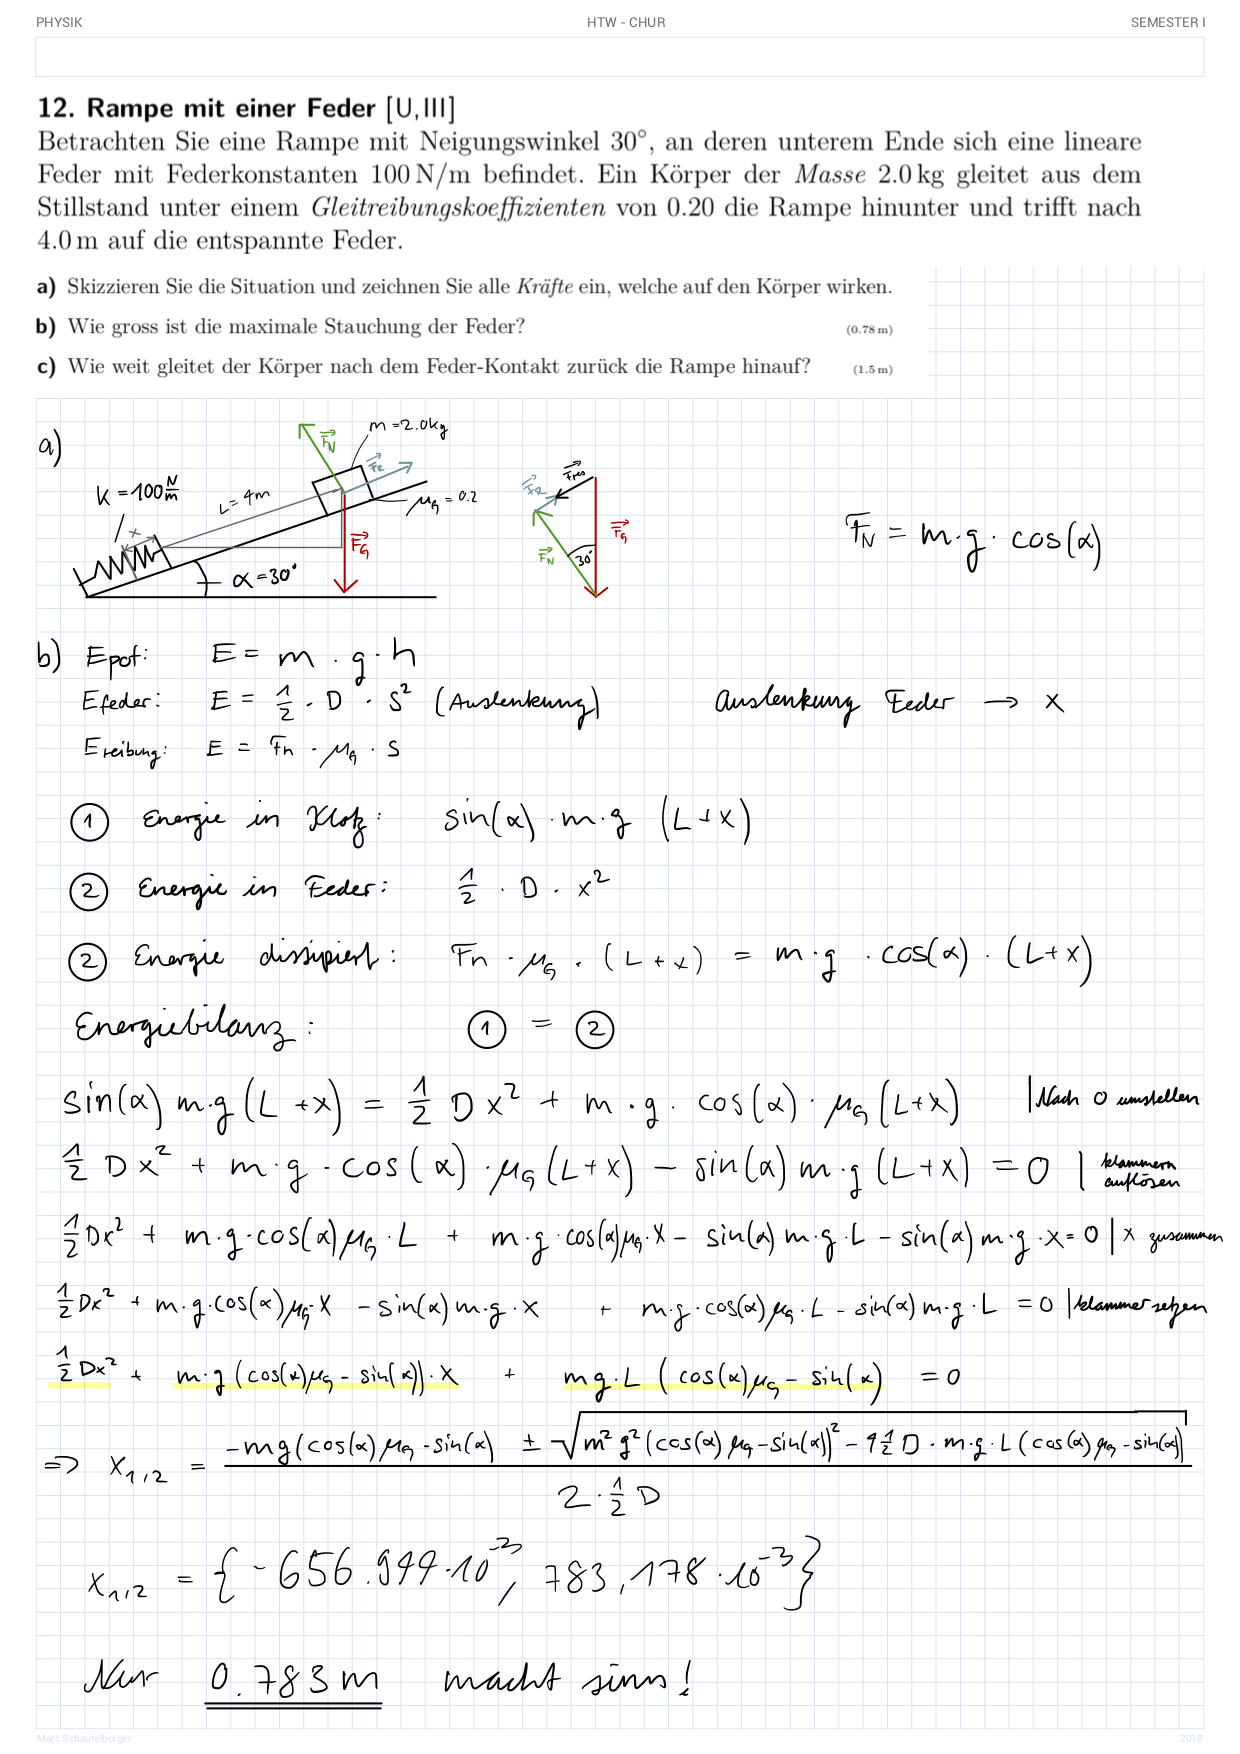 PHYSIK HTW - CHUR SEMESTER I
12. Rampe mit einer Feder [U,III]
Betrachten Sie eine Rampe mit Neigungswinkel 30°, an deren unterem Ende sich eine lineare
Feder mit Federkonstanten 100 N/m befindet. Ein Körper der Masse 2.0 kg gleitet aus dem
Stillstand unter einem Gleitreibungskoeffizienten von 0.20 die Rampe hinunter und trifft nach
4.0 m auf die entspannte Feder.
a) Skizzieren Sie die Situation und zeichnen Sie alle Kräfte ein, welche auf den Körper wirken.
b) Wie gross ist die maximale Stauchung der Feder? (0.78 m)
c) Wie weit gleitet der Körper nach dem Feder-Kontakt zurück die Rampe hinauf? (1.5 m)
a)
m = 2.0kg
F_N
F_R
K = 100 N/m
L = 4m
μ_G = 0.2
x
F_G
α = 30°
F_res
F_R
F_G
F_N
30°
F_N = m · g · cos(α)
b) Epot: E = m · g · h
Efeder: E = 1/2 · D · S² (Auslenkung) Auslenkung Feder → x
Ereibung: E = Fn · μ_G · S
① Energie in Klotz: sin(α) · m · g (L + x)
② Energie in Feder: 1/2 · D · x²
② Energie dissipiert: Fn · μ_G · (L + x) = m · g · cos(α) · (L + x)
Energiebilanz: ① = ②
sin(α) m·g (L + x) = 1/2 D x² + m · g · cos(α) · μ_G (L + x) | Nach 0 umstellen
1/2 D x² + m · g · cos(α) · μ_G (L + x) − sin(α) m · g (L + x) = 0 | klammern auflösen
1/2 Dx² + m · g · cos(α) μ_G · L + m · g · cos(α) μ_G · x − sin(α) m · g · L − sin(α) m · g · x = 0 | x zusammen
1/2 Dx² + m · g · cos(α) μ_G · x − sin(α) m · g · x + m · g · cos(α) μ_G · L − sin(α) m · g · L = 0 | klammer setzen
1/2 Dx² + m · g (cos(α) μ_G − sin(α)) · x + mg · L (cos(α) μ_G − sin(α) = 0
=> x_1,2 = (−mg (cos(α) μ_G − sin(α) ± √(m² g² (cos(α) μ_G − sin(α))² − 4 1/2 D · m · g · L (cos(α) μ_G − sin(α))) / (2 · 1/2 D)
x_1,2 = {−656.999 · 10⁻³, 783,178 · 10⁻³}
Nur 0.783 m macht sinn!
Marc Schaufelberger 2018